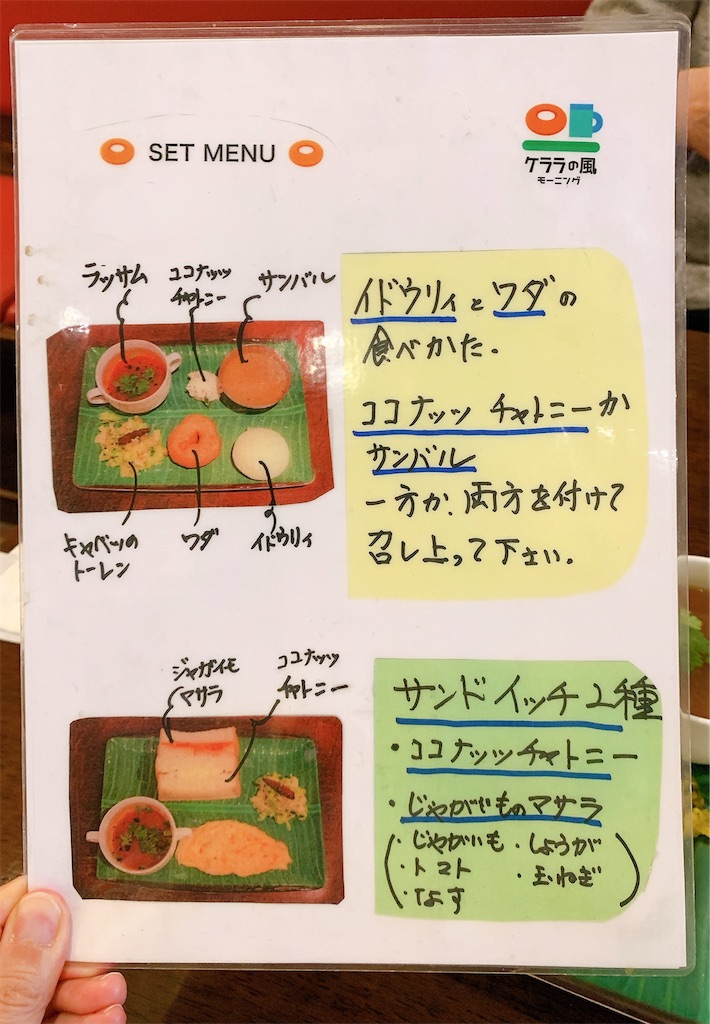 SET MENU
ケララの風
モーニング
ラッサム
ココナッツ
チャトニー
サンバル
キャベツの
トーレン
ワダ
イドウリィ
イドウリィとワダの
食べかた.
ココナッツ チャトニーか
サンバル
一方か、両方を付けて
召し上って下さい.
ジャガイモ
マサラ
ココナッツ
チャトニー
サンドイッチ2種
・ココナッツチャトニー
・じゃがいものマサラ
(・じゃがいも ・しょうが
・トマト ・玉ねぎ
・なす)